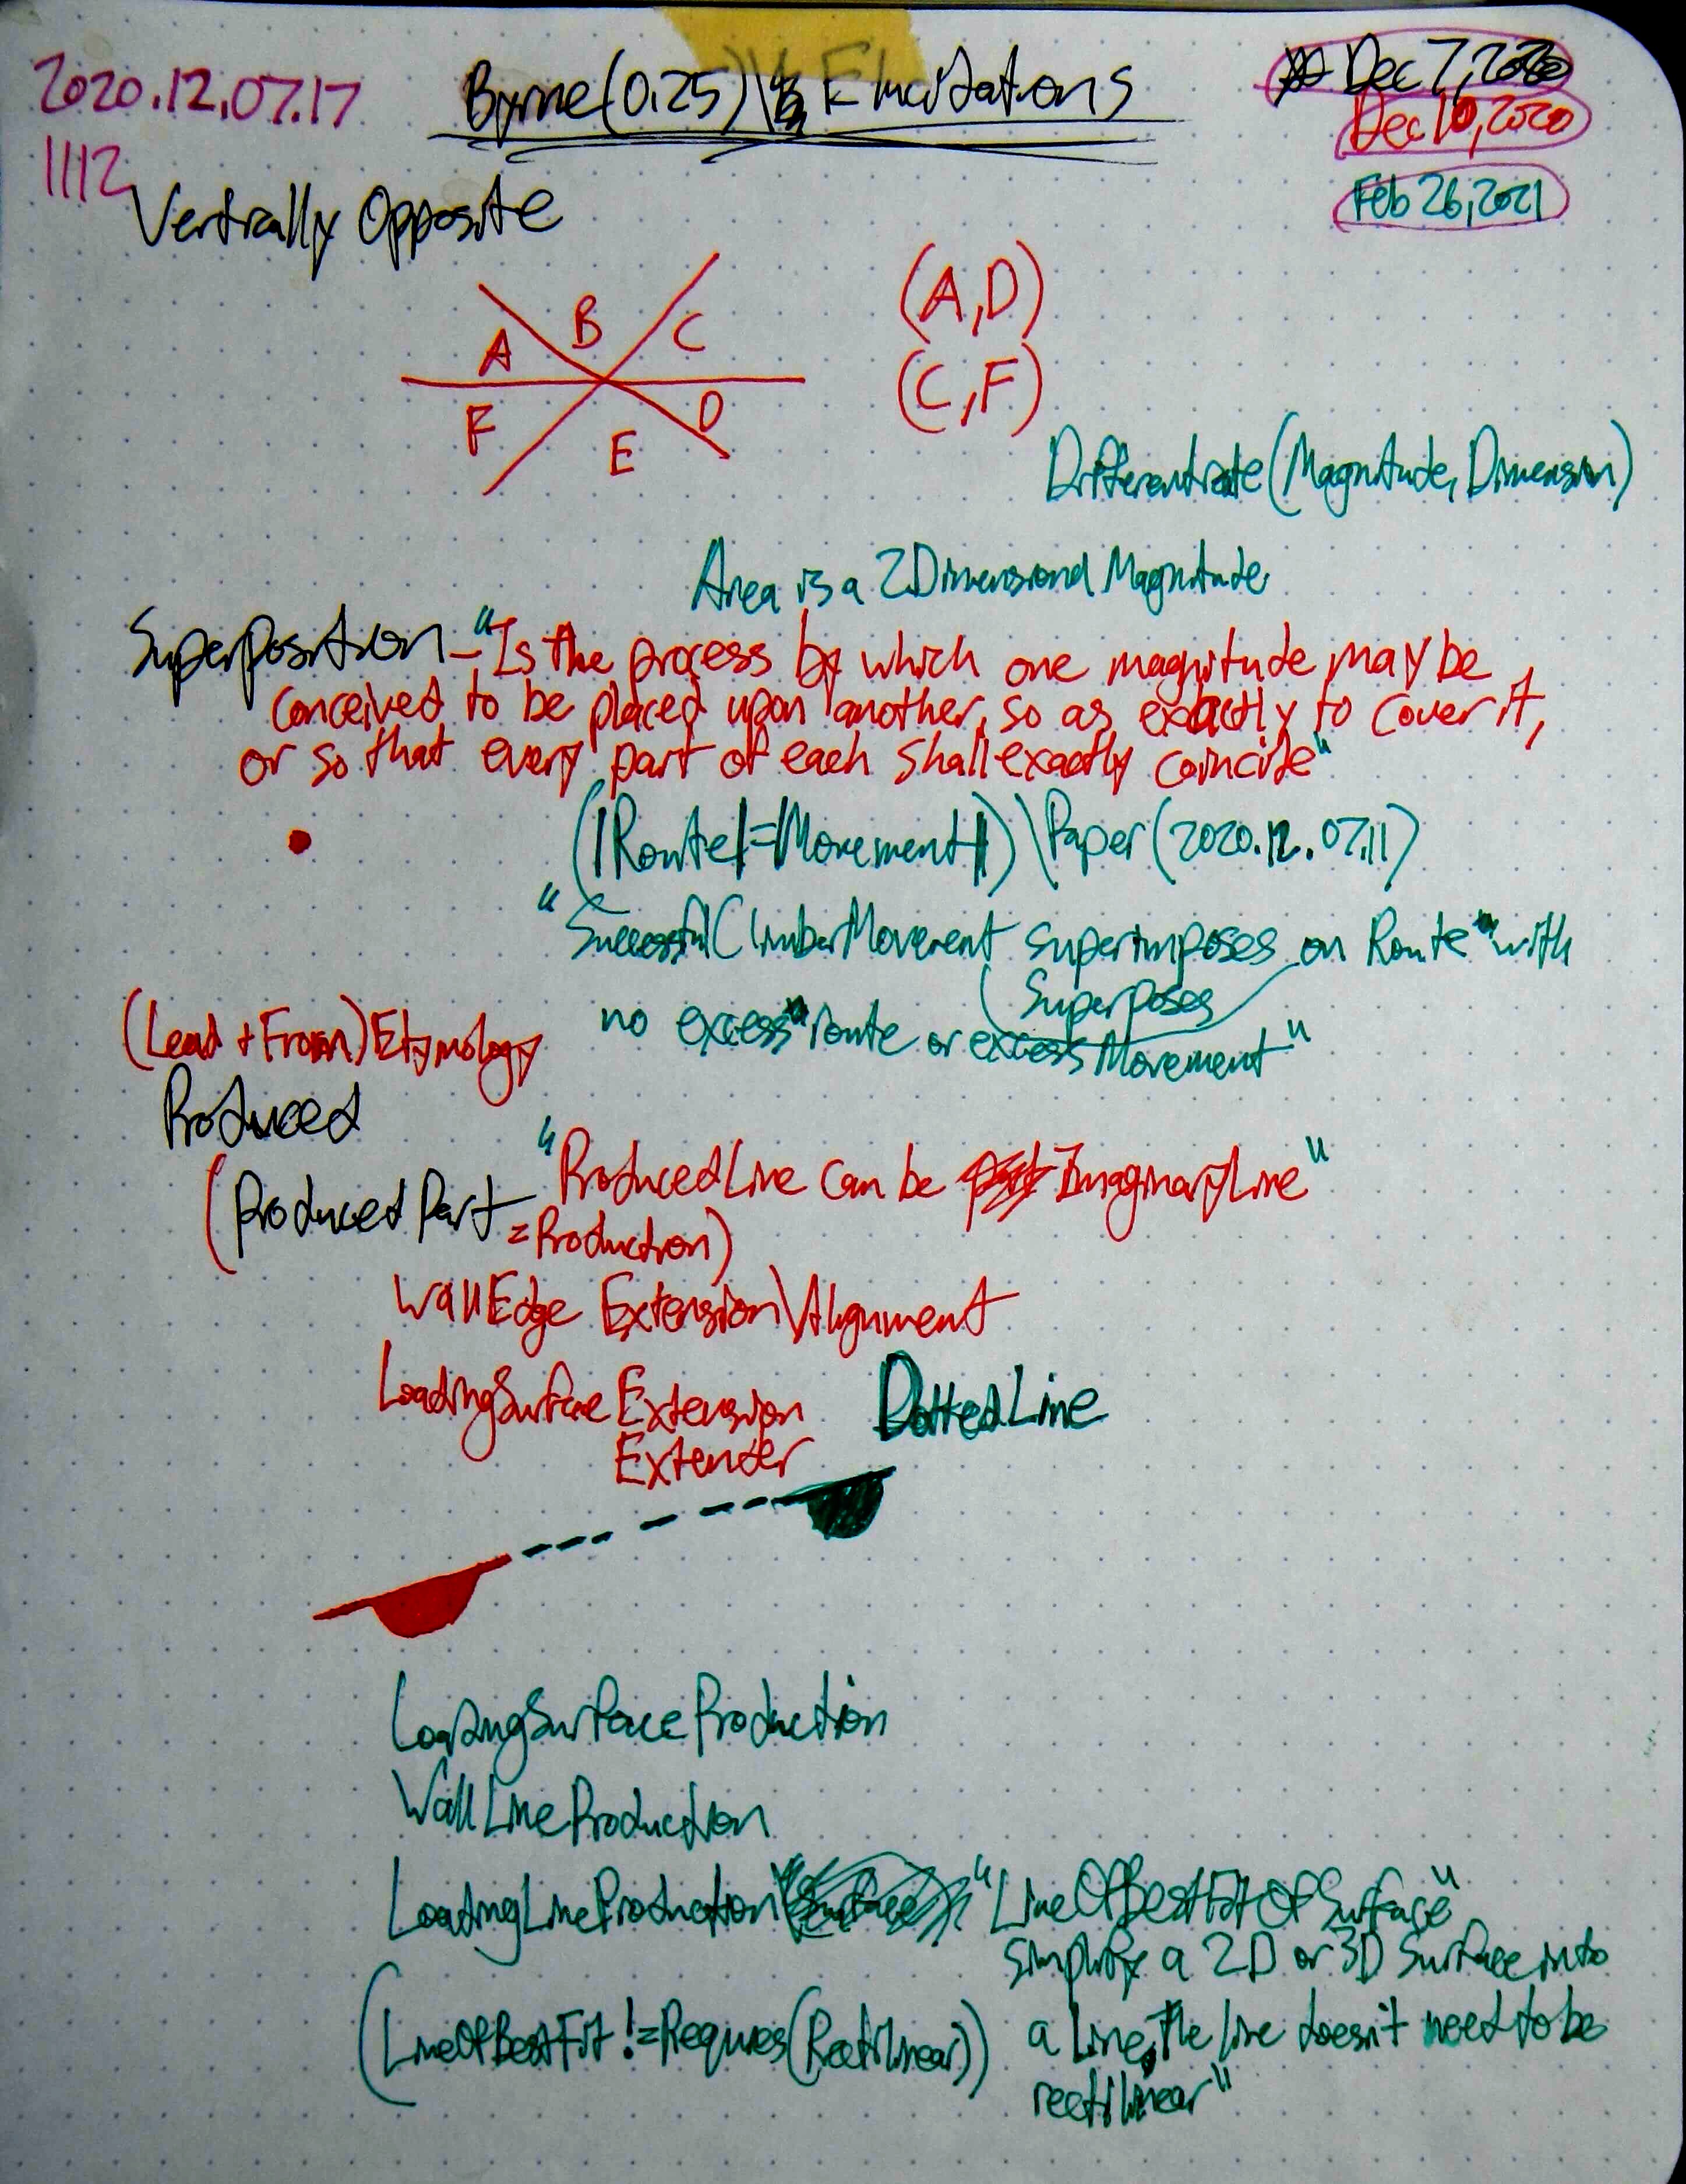 2020.12.07.17
1112
Byrne(0.25)\ Elucidations
Dec 7, 2020
Dec 10, 2020
Feb 26, 2021
Vertically Opposite
A B C
F E D
(A,D)
(C,F)
Differentiate(Magnitude, Dimension)
Area is a 2Dimensional Magnitude
Superposition - "Is the process by which one magnitude may be
conceived to be placed upon another, so as exactly to cover it,
or so that every part of each shall exactly coincide"
(|Route|=|Movement|)\Paper(2020.12.07.11)
"SuccessfulClimberMovement superimposes on Route with
(Superposes
no excess route or excess Movement"
(Lead + From)Etymology
Produced
"ProducedLine can be ImaginaryLine"
(Produced Part
=Production)
WallEdge Extension\Alignment
LoadingSurface Extension
Extender
DottedLine
LoadingSurfaceProduction
WallLineProduction
LoadingLineProduction "LineOfBestFitOfSurface"
simplify a 2D or 3D Surface into
(LineOfBestFit !=Requires(Rectilinear)) a Line, The line doesn't need to be
rectilinear"